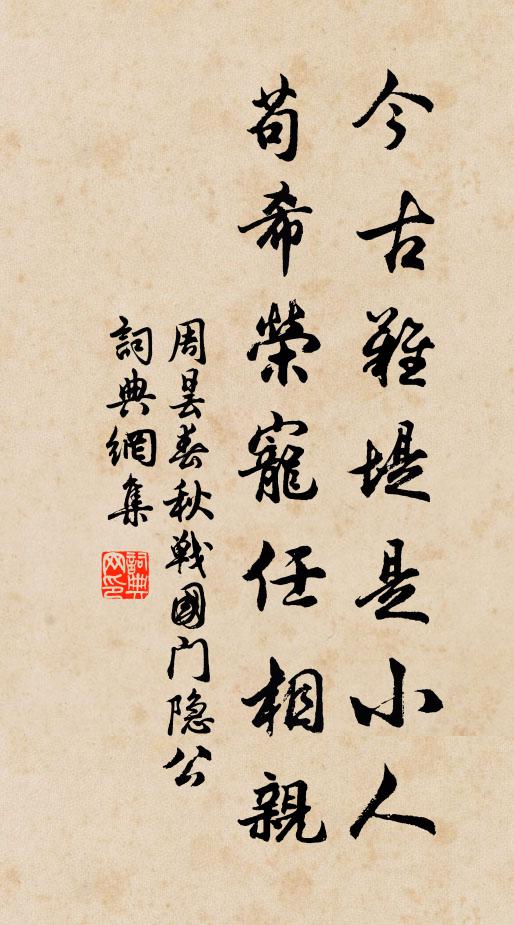 今古難堤是小人
苟希榮寵任相親
周昙春秋戰國门隐公
詞典網集
詞典网印